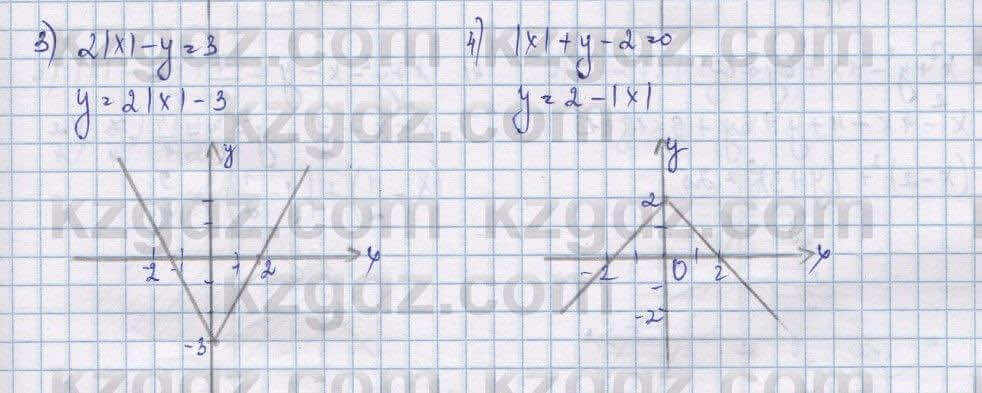 3) 2|x| - y = 3
y = 2|x| - 3
y
-2 -1 1 2 x
-3
4) |x| + y - 2 = 0
y = 2 - |x|
y
2
-2 0 2 x
-2
kzgdz.com
kzgdz.com
kzgdz.com
kzgdz.com
kzgdz.com
kzgdz.com
kzgdz.com
kzgdz.com